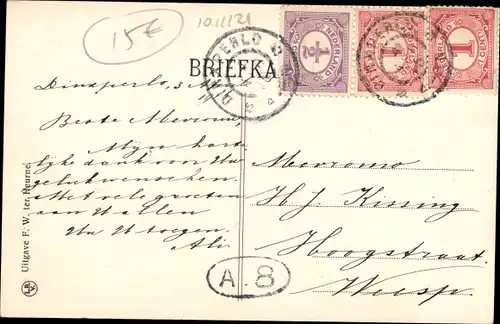 15€
10.11.21
DINXPERLO
½
NEDERLAND
1
1
BRIEFKA
Dinxperlo, 3
Beste Mevrouw,
Mijn harte
lijke dank voor Uw
gelukwenschen.
Met vele groeten
aan U allen
Uw U toegen.
Ali
Mevrouw
H J. Kissing
Hoogstraat.
Weesp.
A. 8
Uitgave F. W. ter. Heurne